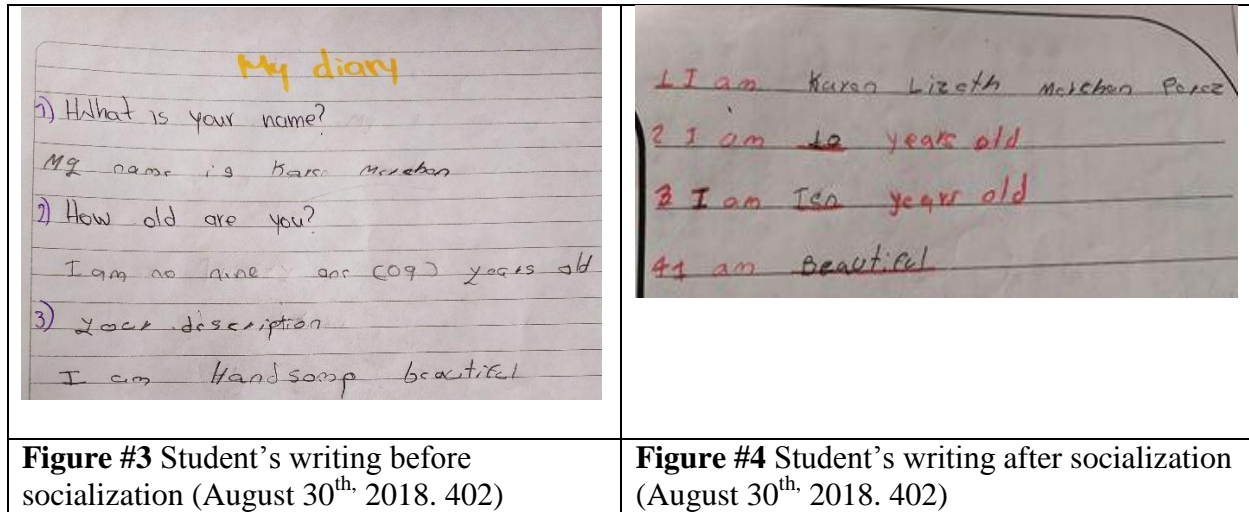 My diary
1) What is your name?
My name is Karen Merchan
2) How old are you?
I am no nine (09) years old
3) your description
I am Handsomp beautiful
1 I am Karen Lizeth Merchan Perez
2 I am 10 years old
3 I am Ten years old
4 I am Beautiful
Figure #3 Student's writing before
socialization (August 30th, 2018. 402)
Figure #4 Student's writing after socialization
(August 30th, 2018. 402)